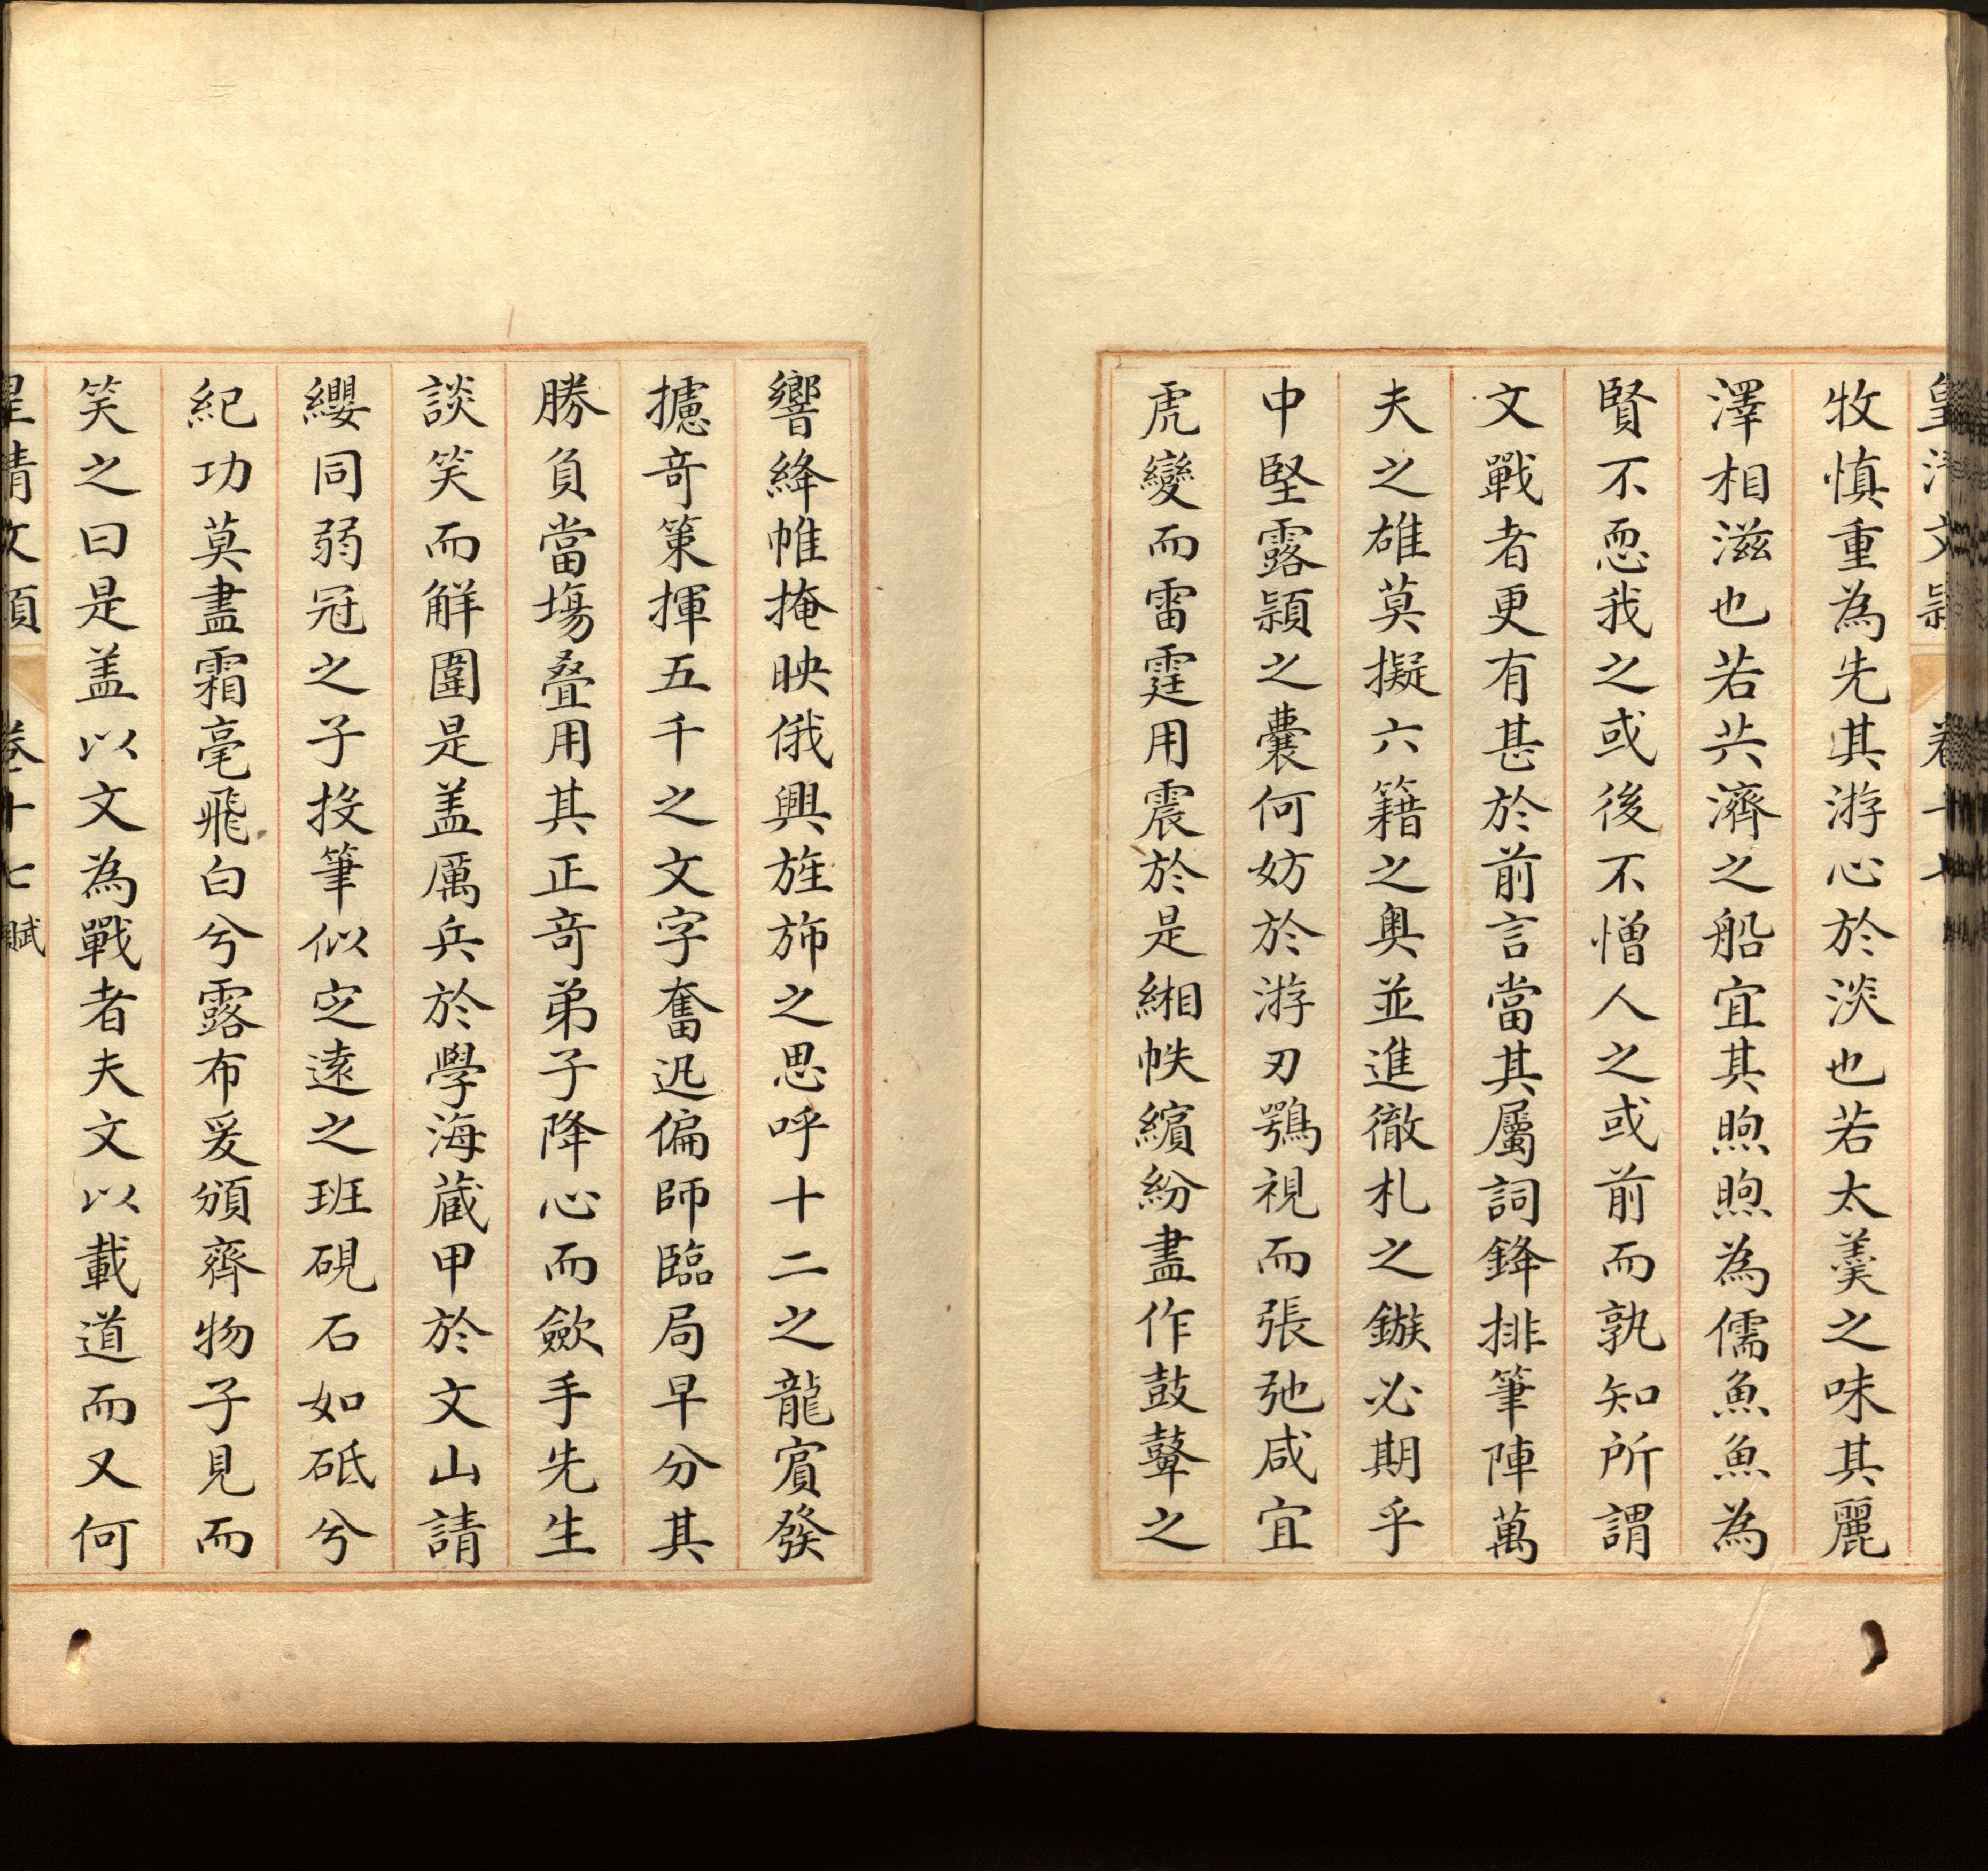 皇清文穎 卷十七
牧慎重為先其游心於淡也若太羹之味其麗
澤相滋也若共濟之船宜其煦煦為儒魚魚為
賢不惡我之或後不憎人之或前而孰知所謂
文戰者更有甚於前言當其屬詞鋒排筆陣萬
夫之雄莫擬六籍之奥並進徹札之鏃必期乎
中堅露穎之囊何妨於游刃鶚視而張弛咸宜
虎變而雷霆用震於是緗帙繽紛盡作鼓鼙之
響絳帷掩映俄興旌斾之思呼十二之龍賓發
攄奇策揮五千之文字奮迅偏師臨局早分其
勝負當塲叠用其正奇弟子降心而歛手先生
談笑而解圍是盖厲兵於學海蔵甲於文山請
纓同弱冠之子投筆似定遠之班硯石如砥兮
紀功莫盡霜毫飛白兮露布爰頒齊物子見而
笑之曰是盖以文為戰者夫文以載道而又何
皇清文穎 卷十七 賦